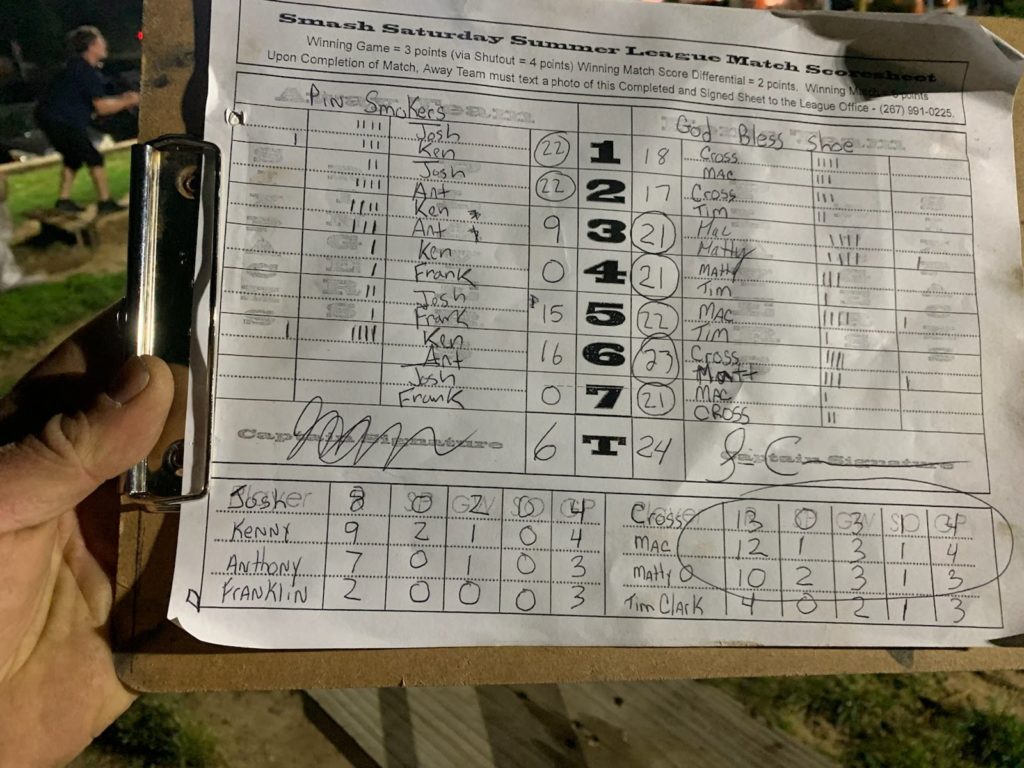 Smash Saturday Summer League Match Scoresheet
Winning Game = 3 points (via Shutout = 4 points) Winning Match Score Differential = 2 points, Winning points
Upon Completion of Match, Away Team must text a photo of this Completed and Signed Sheet to the League Office - (267) 991-0225.
Pin Smokers God Bless Shoe
IIII Josh 22 1 18 Cross IIII
I III Ken MAC III
II Josh 22 2 17 Cross III
IIII Ant Tim II
IIII Ken 9 3 21 Mac IIII
III Ant Matty IIII I
I Ken 0 4 21 Matty III
I Frank Tim I
II Josh 15 5 22 MAC IIII I
I Frank Tim I
I IIII Ken 16 6 23 Cross IIII
Ant Matt III I
Josh 0 7 21 MAC I
Frank CROSS II
Captain Signature 6 T 24 Captain Signature
8 0 2 0 4 Crosse 13 0 3 1 3
KENNY 9 2 1 0 4 MAC 12 1 3 1 4
ANTHONY 7 0 1 0 3 MATTY O 10 2 3 1 3
FRANKLIN 2 0 0 0 3 Tim Clark 4 0 2 1 3